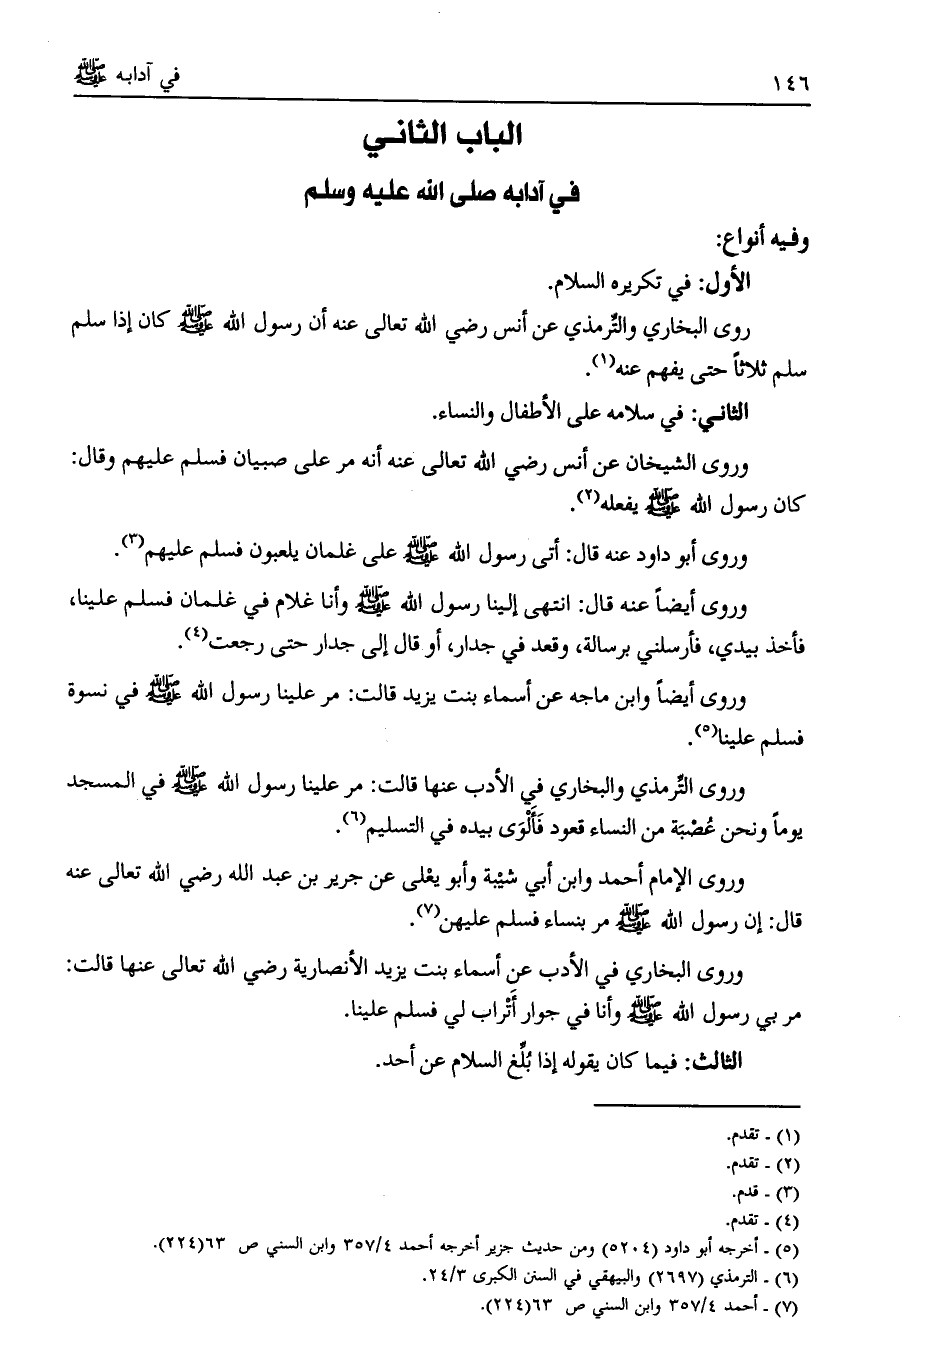 ١٤٦ في آدابه ﷺ
الباب الثاني
في آدابه صلى الله عليه وسلم
وفيه أنواع:
الأول: في تكريره السلام.
روى البخاري والتِّرمذي عن أنس رضي الله تعالى عنه أن رسول الله ﷺ كان إذا سلم
سلم ثلاثاً حتى يفهم عنه(١).
الثاني: في سلامه على الأطفال والنساء.
وروى الشيخان عن أنس رضي الله تعالى عنه أنه مر على صبيان فسلم عليهم وقال:
كان رسول الله ﷺ يفعله(٢).
وروى أبو داود عنه قال: أتى رسول الله ﷺ على غلمان يلعبون فسلم عليهم(٣).
وروى أيضاً عنه قال: انتهى إلينا رسول الله ﷺ وأنا غلام في غلمان فسلم علينا،
فأخذ بيدي، فأرسلني برسالة، وقعد في جدار، أو قال إلى جدار حتى رجعت(٤).
وروى أيضاً وابن ماجه عن أسماء بنت يزيد قالت: مر علينا رسول الله ﷺ في نسوة
فسلم علينا(٥).
وروى التِّرمذي والبخاري في الأدب عنها قالت: مر علينا رسول الله ﷺ في المسجد
يوماً ونحن عُصْبَة من النساء قعود فَأَلْوَى بيده في التسليم(٦).
وروى الإمام أحمد وابن أبي شيْبة وأبو يعْلى عن جرير بن عبد الله رضي الله تعالى عنه
قال: إن رسول الله ﷺ مر بنساء فسلم عليهن(٧).
وروى البخاري في الأدب عن أسماء بنت يزيد الأنصارية رضي الله تعالى عنها قالت:
مر بي رسول الله ﷺ وأنا في جوار أَتْراب لي فسلم علينا.
الثالث: فيما كان يقوله إذا بُلِّغ السلام عن أحد.
(١) ـ تقدم.
(٢) ـ تقدم.
(٣) ـ قدم.
(٤) ـ تقدم.
(٥) ـ أخرجه أبو داود (٥٢٠٤) ومن حديث جزير أخرجه أحمد ٣٥٧/٤ وابن السني ص ٦٣(٢٢٤).
(٦) ـ الترمذي (٢٦٩٧) والبيهقي في السنن الكبرى ٢٤/٣.
(٧) ـ أحمد ٣٥٧/٤ وابن السني ص ٦٣(٢٢٤).